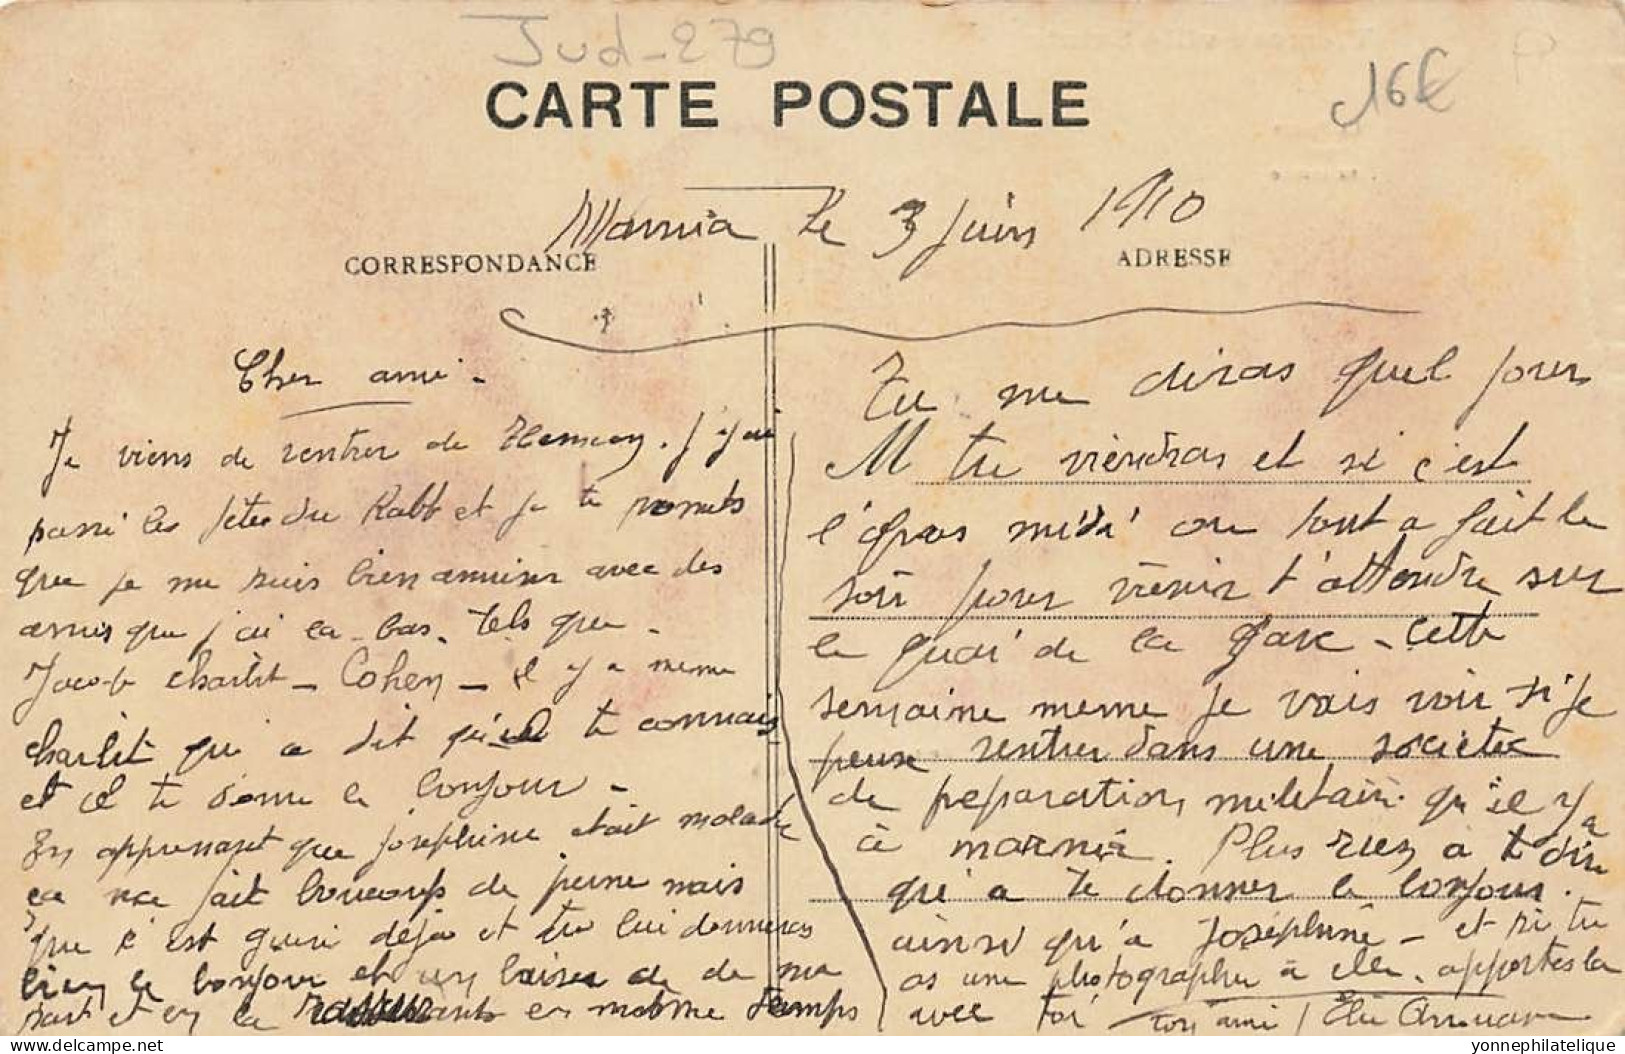 Jud-279
16€
CARTE POSTALE
Marnia Le 3 juin 1910
CORRESPONDANCE
ADRESSE
Cher ami -
Je viens de rentrer de Tlemcen. J'y ai
passé les fêtes du Rabb et je te promets
que je me suis bien amuser avec des
amis que j'ai la-bas. Tels que -
Jacob Charbit - Cohen - il y a meme
Charbit qui a dit qu'il te connais
et il te donne le bonjour -
En apprenant que joséphine était malade
ca ma fait boucoups de peine mais
que c'est gueri déja et tu lui donneras
bien le bonjour et un baiser de ma
part et en la rassurant en même temps
Tu me diras quel jour
M tu viendras et si c'est
l'apras midi ou tout a fait le
soir pour venir t'attendre sur
le quai de la gare - cette
semaine meme je vais voir si je
peux rentrer dans une societée
de preparation militaire qu'il y a
à marnia. Plus rien a te dire
qu'a te donner le bonjour.
ainsi qu'a Joséphine - et si tu
as une photographie à elle. apportes la
avec toi ton ami / Elie
yonnephilatelie.com
www.yonnephilatelique